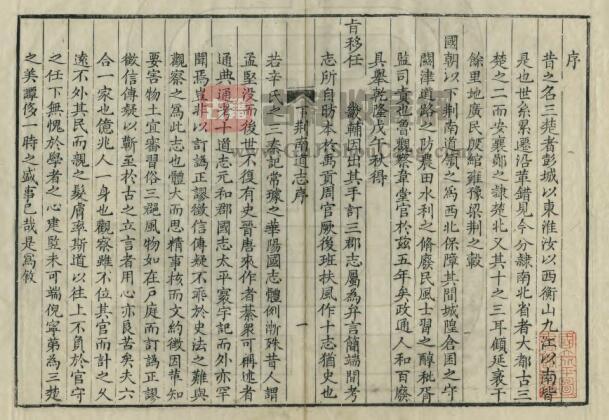 序
昔之名三楚者彭城以東淮汝以西衡山九江以南皆
是也世系累遷沿革錯見今分隸南北省者大都古三
楚之二而安襄鄖之隸楚北又其十之三耳顧延袤千
餘里地廣民庻綰雍豫梁荆之轂
國朝以下荆南道領之為西北保障其間城隍倉囷之守
關津道路之防農田水利之脩廢民風士習之醇秕胥
監司責也當觀察韋堂官於兹五年矣政通人和百廢
具舉乾隆戊午秋得
旨移任
畿輔因出其手訂三郡志屬為弁言簡端聞考
志所自昉本於禹貢周官厥後班扶風作十志猶史也
下荆南道志序
一
若辛氏之三秦記常璩之華陽國志體例漸殊昔人謂
孟堅没而後世不復有史晉唐來作者綦衆可稱述者
通典通考十道志元和郡國志太平寰宇記而外亦罕
聞焉豈非以訂譌正謬徵信傳疑不乖於史法之難與
觀察之為此志也體大而思精事核而文約徵因革知
要害物土宜審習俗三郡風物如在戶庭而訂譌正謬
徵信傳疑以蘄至於古之立言者用心亦良苦矣夫六
合一家也億兆人一身也觀察雖不位其官而計之久
遠不外其民而親之髮膚率斯道以往上不負於官守
之任下無愧於學者之心建豎未可端倪寧第為三楚
之美譚侈一時之盛事已哉是為敘